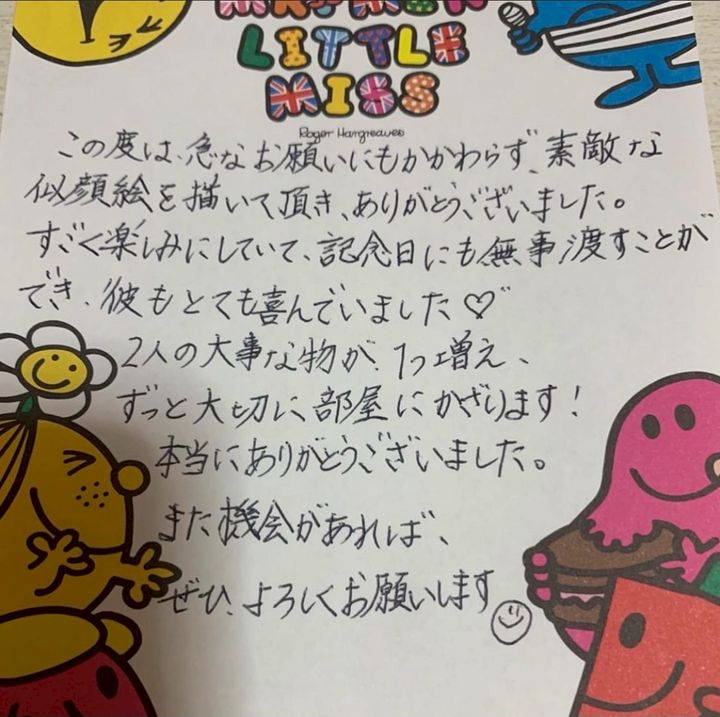 MR. MEN
LITTLE
MISS
Roger Hargreaves
この度は、急なお願いにもかかわらず、素敵な
似顔絵を描いて頂き、ありがとうございました。
すごく楽しみにしていて、記念日にも無事渡すことが
でき、彼もとても喜んでいました♡
2人の大事な物が、1つ増え、
ずっと大切に、部屋にかざります！
本当にありがとうございました。
また機会があれば、
ぜひ、よろしくお願いします